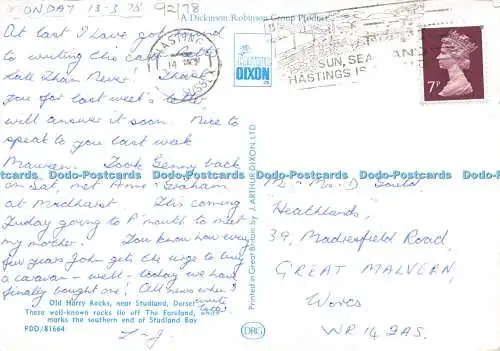 MONDAY 13-3-78 92178
A Dickinson Robinson Group Product
At last I have got round
to writing this card
Late Than Never! Thank
you for last week's letter,
will answer it soon. Nice to
speak to you last week
Maureen. Took Genny back
on Sat, met Anne + Graham
at Midhurst. This coming
Friday going to P'mouth to meet
my mother. You know how every
few years John gets the urge to buy
a caravan - well - today we have
finally bought one! All news when I
write later
HASTINGS
14 MCH
SUSSEX
J ARTHUR
DIXON
SUN, SEA AND
HASTINGS IS
7P
Printed in Great Britain by J. ARTHUR DIXON LTD
DRG
Mr + Mrs D Gould
"Heathlands,"
39, Madresfield Road,
GREAT MALVERN,
Worcs
WR14 2AS.
Old Harry Rocks, near Studland, Dorset
These well-known rocks lie off The Foreland, which
marks the southern end of Studland Bay
PDD/81664
Watermarks-PC
Watermarks-PC
Watermarks-PC
Watermarks-PC
Watermarks-PC
Watermarks-PC